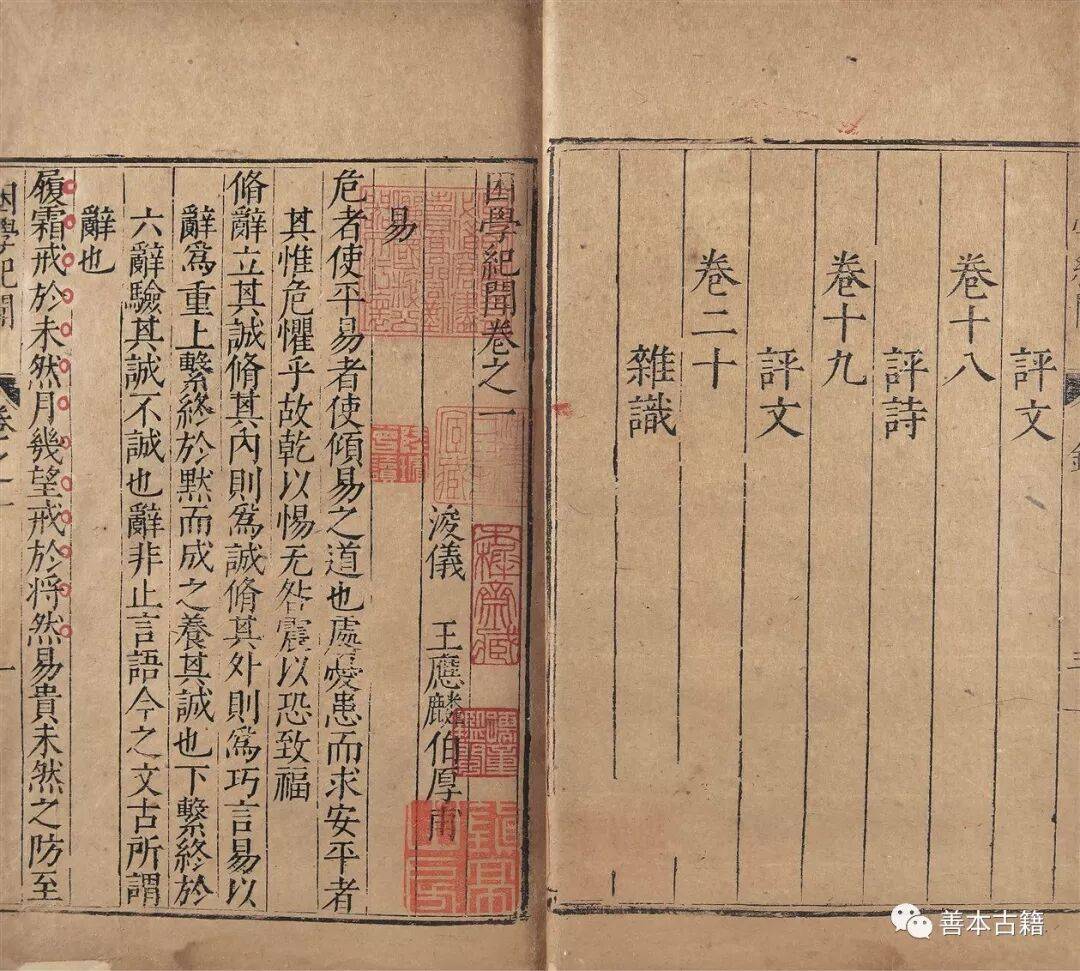 評文
卷十八
評詩
卷十九
評文
卷二十
雜識
困學紀聞卷之一
浚儀 王應麟伯厚甫
易
危者使平易者使傾易之道也處憂患而求安平者
其惟危懼乎故乾以惕无咎震以恐致福
脩辭立其誠脩其內則為誠脩其外則為巧言易以
辭為重上繫終於默而成之養其誠也下繫終於
六辭驗其誠不誠也辭非止言語今之文古所謂
辭也
履霜戒於未然月幾望戒於將然易貴未然之防至
困學紀聞
卷之一
一
善本古籍